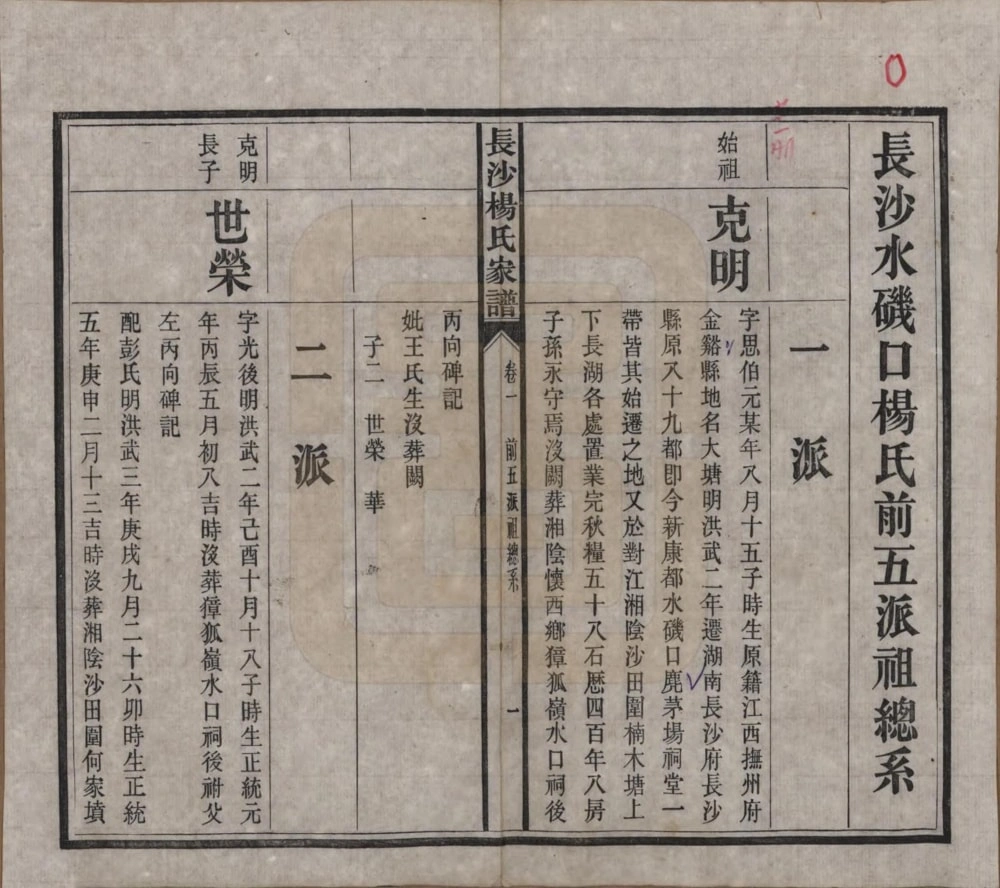 長沙水磯口楊氏前五派祖總系
一派
始祖
克明
字思伯元某年八月十五子時生原籍江西撫州府
金谿縣地名大塘明洪武二年遷湖南長沙府長沙
縣原八十九都即今新康都水磯口麂茅場祠堂一
帶皆其始遷之地又於對江湘陰沙田圍楠木塘上
下長湖各處置業完秋糧五十八石歷四百年八房
子孫永守焉沒闕葬湘陰懷西鄉獐狐嶺水口祠後
長沙楊氏家譜
卷一
前五派祖總系
一
丙向碑記
妣王氏生沒葬闕
子二 世榮 華
二派
克明
長子
世榮
字光後明洪武二年己酉十月十八子時生正統元
年丙辰五月初八吉時沒葬獐狐嶺水口祠後祔父
左丙向碑記
配彭氏明洪武三年庚戌九月二十六卯時生正統
五年庚申二月十三吉時沒葬湘陰沙田圍何家墳